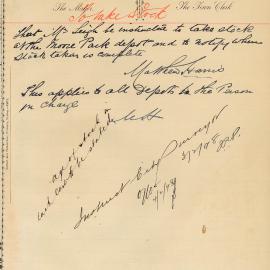 The Mayor The Town Clerk
To take Stock
That Mr Leigh be instructed to take stock
at the Moore Park depot and to notify when
stock taken is complete
Matthew Harris
This applies to all Depots by the Person
in charge
MH
a/c of stock &
cost to be stated
Instruct City Surveyor
3/2/98
4/2/98